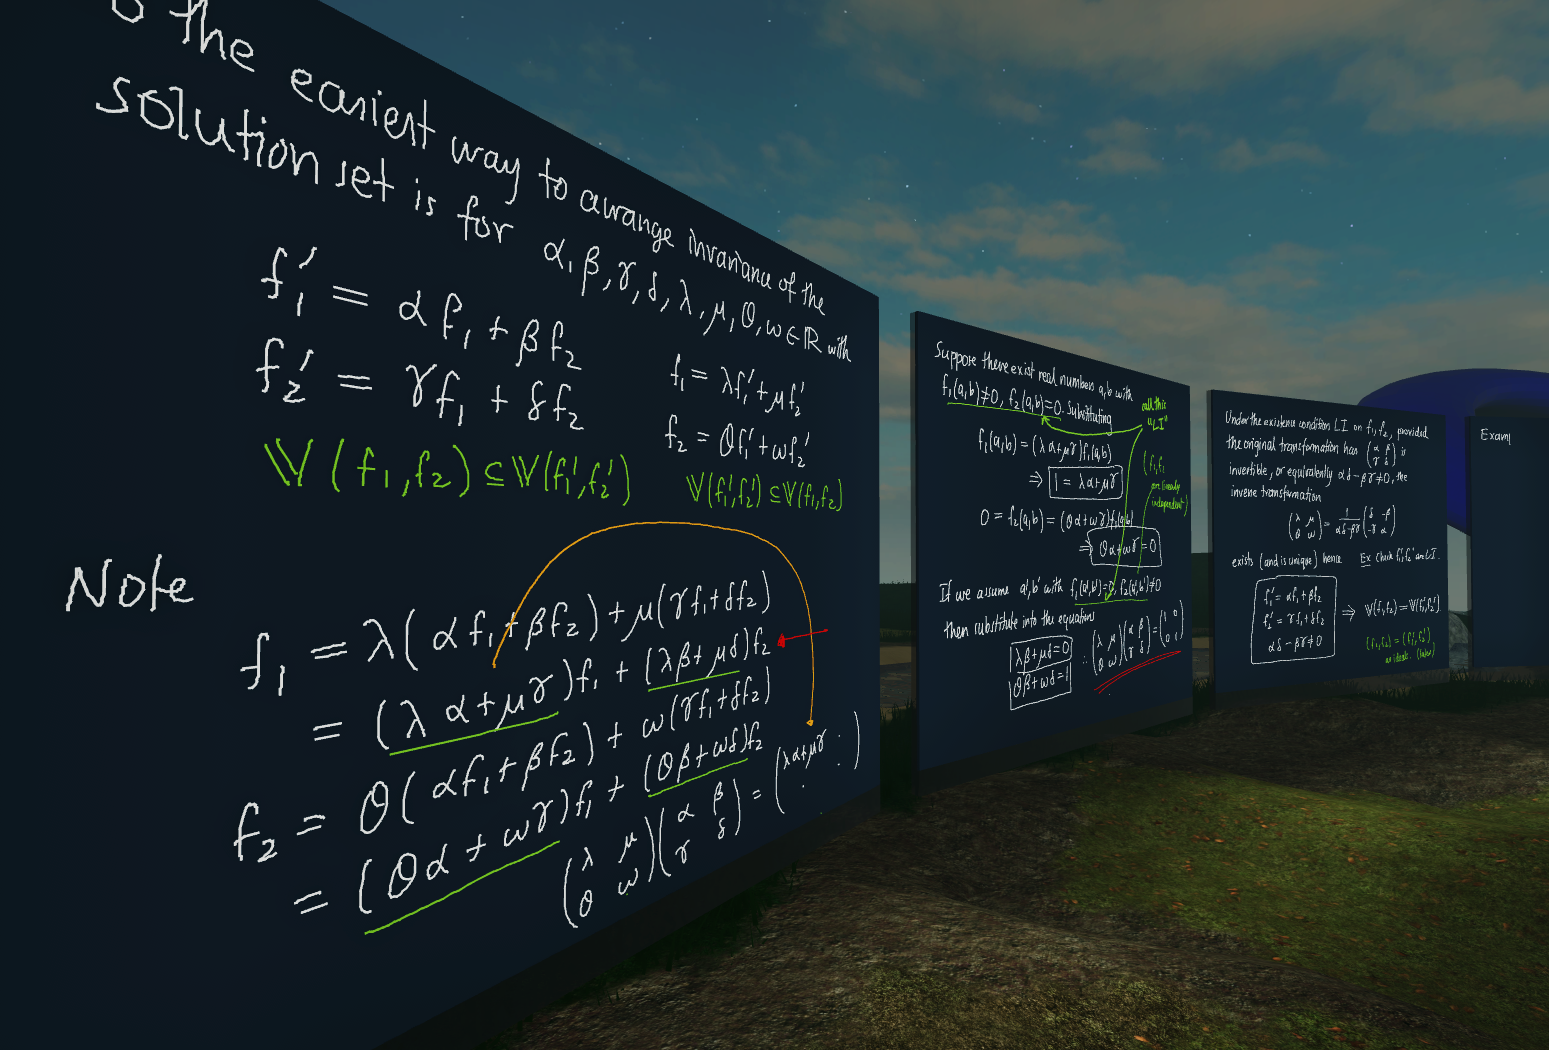 the easiest way to awrange invariance of the
solution set is for α, β, γ, δ, λ, μ, θ, ω ∈ ℝ with
f₁' = α f₁ + β f₂
f₂' = γ f₁ + δ f₂
f₁ = λf₁' + μf₂'
f₂ = θf₁' + ωf₂'
𝕍(f₁,f₂) ⊆ 𝕍(f₁',f₂')
𝕍(f₁',f₂') ⊆ 𝕍(f₁,f₂)
Note
f₁ = λ(αf₁ + βf₂) + μ(γf₁ + δf₂)
= (λα + μγ)f₁ + (λβ + μδ)f₂
f₂ = θ(αf₁ + βf₂) + ω(γf₁ + δf₂)
= (θα + ωγ)f₁ + (θβ + ωδ)f₂
(λ μ
θ ω)(α β
γ δ) = (λα+μγ :
.)
Suppose there exist real numbers a,b with
f₁(a,b)≠0, f₂(a,b)=0. Substituting
call this
"LI"
f₁(a,b) = (λα+μγ)f₁(a,b)
⇒ 1 = λα+μγ
(f₁,f₂
are linearly
independent)
0 = f₂(a,b) = (θα+ωγ)f₁(a,b)
⇒ θα+ωγ=0
If we assume a',b' with f₁(a',b')=0, f₂(a',b')≠0
then substitute into the equations
λβ+μδ=0
θβ+ωδ=1
∴ (λ μ
θ ω)(α β
γ δ) = (1 0
0 1)
Under the existence condition LI on f₁,f₂, provided
the original transformation has (α β
γ δ) is
invertible, or equivalently αδ-βγ≠0, the
inverse transformation
(λ μ
θ ω) = 1/(αδ-βγ) (δ -β
-γ α)
exists (and is unique) hence Ex Check f₁',f₂' are LI.
f₁' = αf₁+βf₂
f₂' = γf₁+δf₂
αδ-βγ≠0
⇒ 𝕍(f₁,f₂)=𝕍(f₁',f₂')
(f₁,f₂) = (f₁',f₂')
as ideals. (later)
Examl